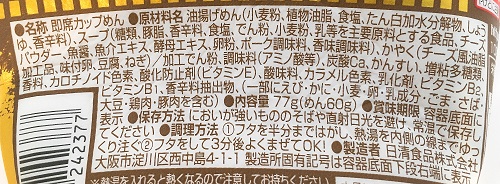 ●名称 即席カップめん ●原材料名 油揚げめん(小麦粉、植物油脂、食塩、たん白加水分解物、しょう
ゆ、香辛料)、スープ(糖類、豚脂、香辛料、食塩、でん粉、小麦粉、乳等を主要原料とする食品、チーズ
パウダー、魚醤、魚介エキス、酵母エキス、卵粉、ポーク調味料、香味調味料)、かやく(チーズ風油脂
加工品、味付卵、豆腐、ねぎ)/加工でん粉、調味料(アミノ酸等)、炭酸Ca、かんすい、増粘多糖類、
香料、カロチノイド色素、酸化防止剤(ビタミンE)、酸味料、カラメル色素、乳化剤、ビタミンB2、
ビタミンB1、香辛料抽出物、(一部にえび・かに・小麦・卵・乳成分・ごま・さば・
大豆・鶏肉・豚肉を含む) ●内容量 77g(めん60g) ●賞味期限 容器底面に
表示 ●保存方法 においが強いもののそばや直射日光を避け、常温で保存し
てください ●調理方法 ①フタを半分まではがし、熱湯を内側の線までゆっ
くり注ぐ②フタをして3分後よくまぜてOK! ●製造者 日清食品株式会社
大阪市淀川区西中島4-1-1 製造所固有記号は容器底面下段右端に表示
※熱湯を入れると熱くなるので注意してお持ちください
242377